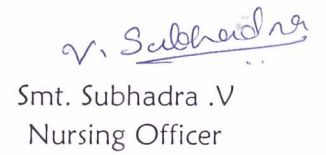 V. Subhadra
Smt. Subhadra .V
Nursing Officer